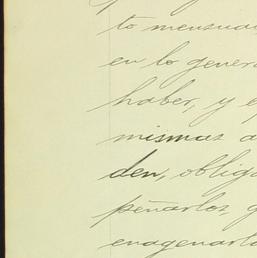 to mensua
en lo genera
haber, y e
mismas a
den, obliga
peñarlos, g
enagenarlo